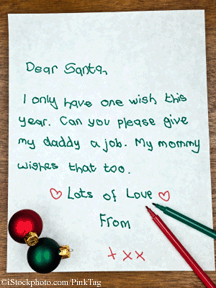 Dear Santa,
I only have one wish this
year. Can you please give
my daddy a job. My mommy
wishes that too.
♡ Lots of Love ♡
From
xxx
©iStockphoto.com/PinkTag